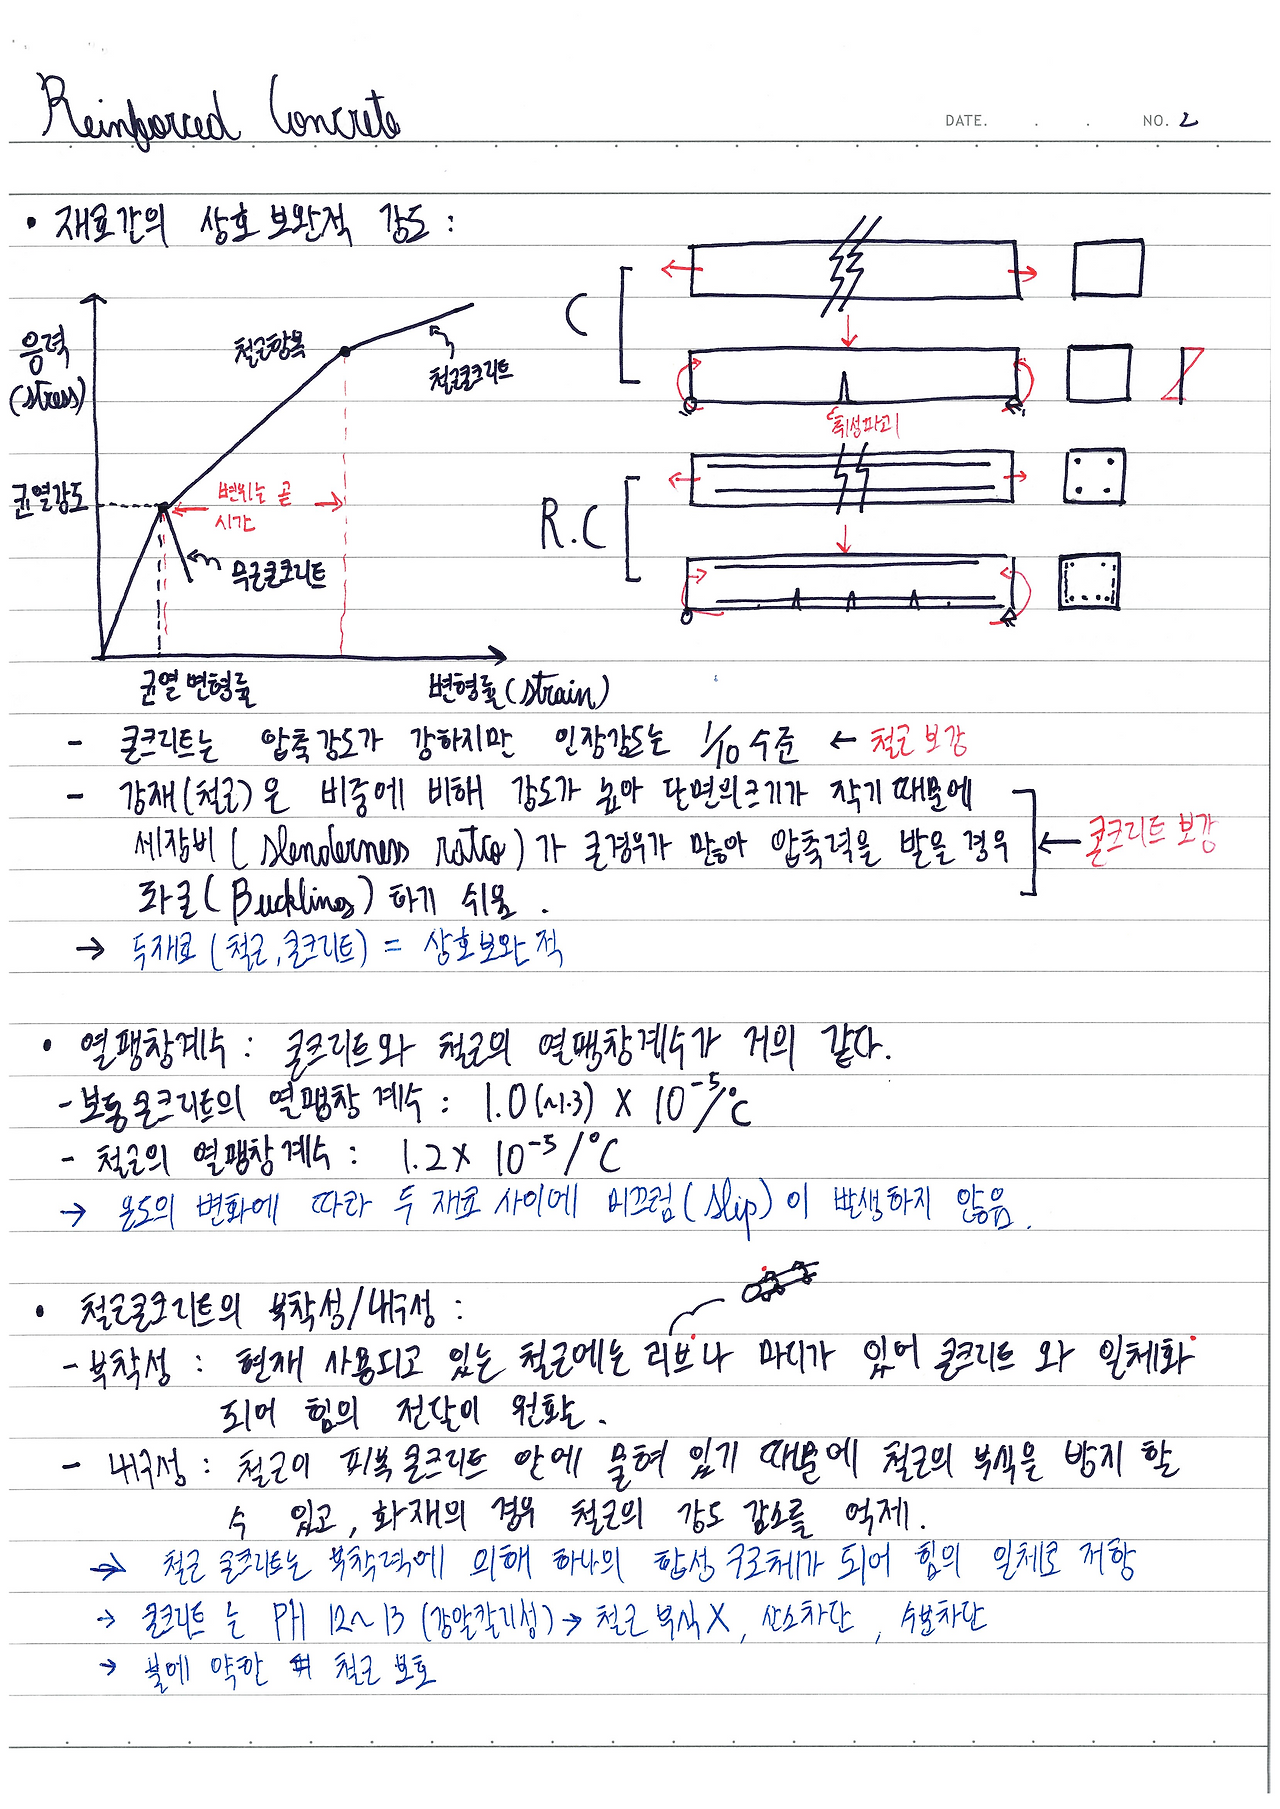 Reinforced Concrete
DATE. . . NO. 2
• 재료간의 상호보완적 강도 :
응력
(stress)
철근항복
철근콘크리트
균열강도
변위는 곧
시간
무근콘크리트
균열변형률
변형률(strain)
C
취성파괴
R.C
- 콘크리트는 압축강도가 강하지만 인장강도는 1/10 수준 ← 철근 보강
- 강재(철근)은 비중에 비해 강도가 높아 단면의 크기가 작기 때문에
세장비(slenderness ratio)가 큰경우가 많아 압축력을 받을 경우
← 콘크리트 보강
좌굴(Buckling)하기 쉬움.
→ 두재료(철근,콘크리트) = 상호보완적
• 열팽창계수 : 콘크리트와 철근의 열팽창계수가 거의 같다.
- 보통콘크리트의 열팽창 계수 : 1.0(~1.3) x 10⁻⁵/℃
- 철근의 열팽창계수 : 1.2 x 10⁻⁵/℃
→ 온도의 변화에 따라 두 재료 사이에 미끄럼(slip)이 발생하지 않음.
• 철근콘크리트의 부착성/내구성 :
- 부착성 : 현재 사용되고 있는 철근에는 리브나 마디가 있어 콘크리트와 일체화
되어 힘의 전달이 원활.
- 내구성 : 철근이 피복콘크리트 안에 묻혀 있기 때문에 철근의 부식을 방지 할
수 있고, 화재의 경우 철근의 강도 감소를 억제.
→ 철근 콘크리트는 부착력에 의해 하나의 합성 구조체가 되어 힘의 일체로 저항
→ 콘크리트 는 PH 12~13 (강알칼리성) → 철근 부식X, 산소차단, 수분차단
→ 불에 약한 철근 보호